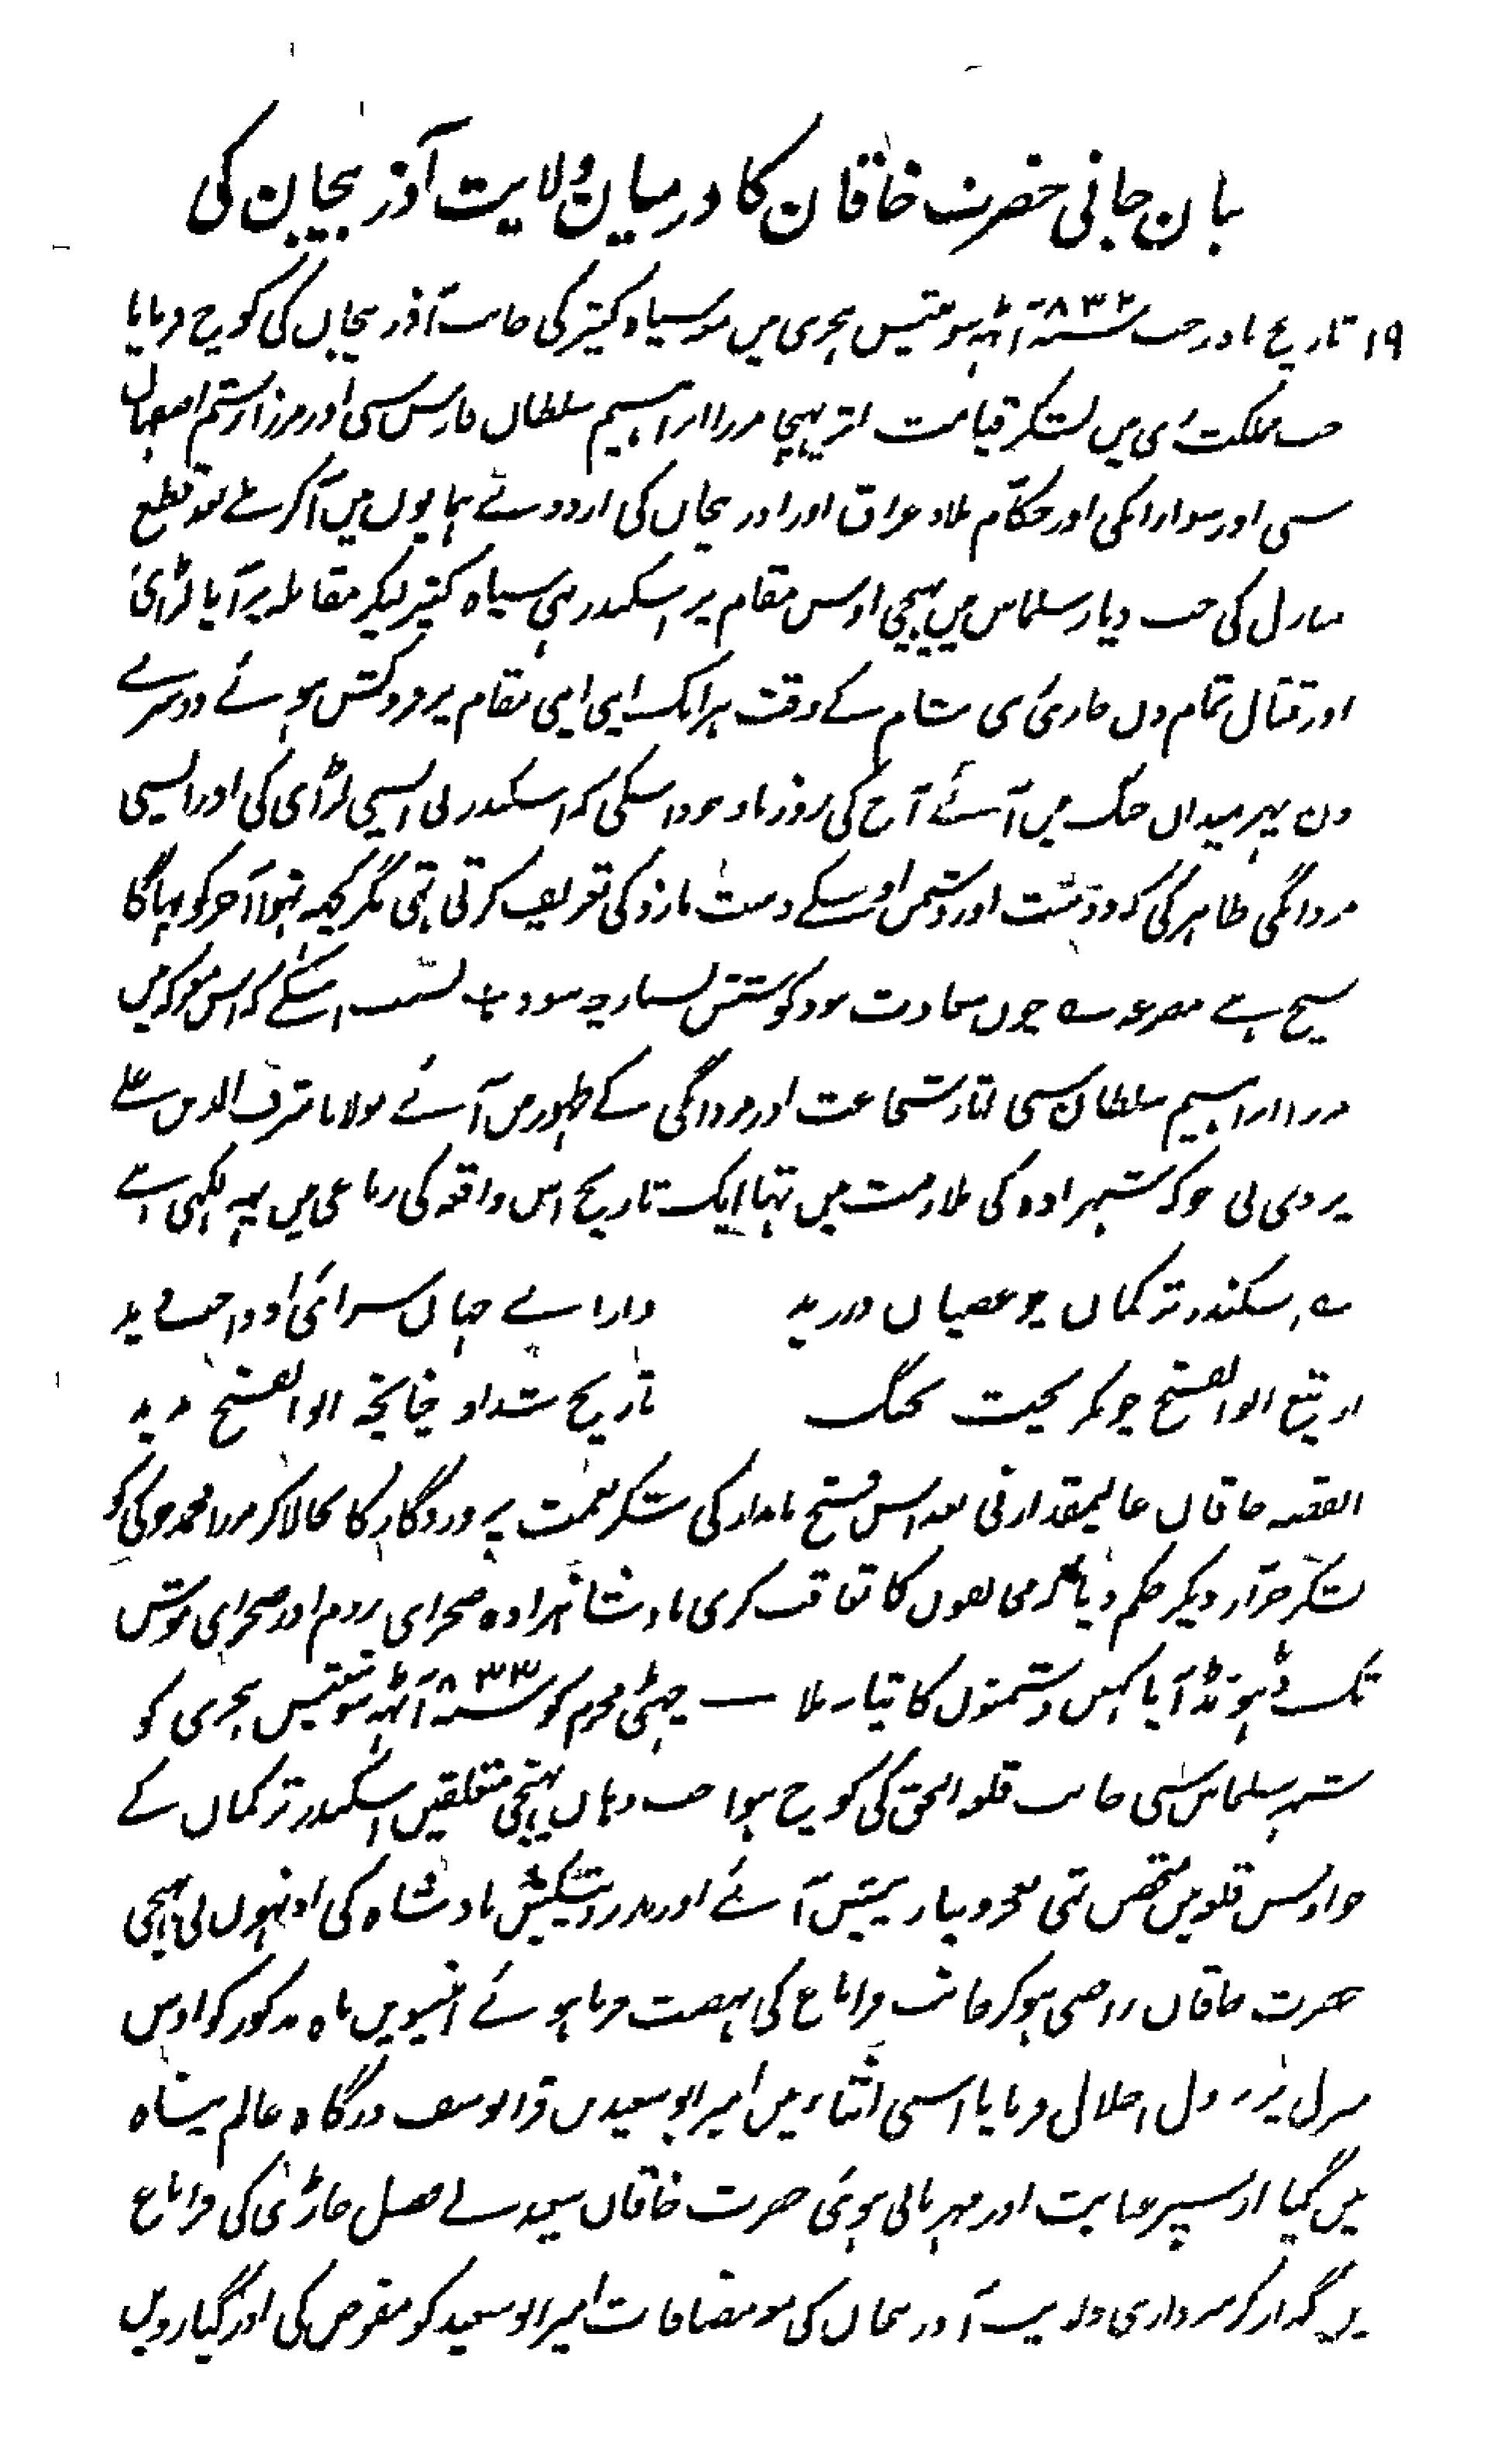 بیان جانی حضرت خاقان کا درمیان ولایت آذربیجان کی
۱۹ تاریخ ماہ رجب سنہ ۸۳۲ آٹہہ سو بتیس ہجری میں مع سپاہ کثیر کی جانب آذربیجان کی کوچ فرمایا
جب مملکت ری میں لشکر قیامت اثر پہنچا مرزا ابراہیم سلطان فارس سی اور مرزا رستم اصفہان
سی اور حکام بلاد عراق اور اذربیجان کی اردوئے ہمایوں میں آکر ملے بعد قطع
منازل کی جب دیار سلماس میں پہنچی اوس مقام پر اسکندر بہی سپاہ کثیر لیکر مقابلہ پر آیا لڑائی
اور قتال تمام دن جاری رہی شام کے وقت ہر ایک اپنی اپنی مقام پر فروکش ہوئے دوسرے
دن پہر میدان جنگ میں آئے آج کی روز باوجود اسکی کہ اسکندر نی ایسی لڑائی کی اور ایسی
مردانگی ظاہر کی کہ دوست اور دشمن اوسکے دست بازو کی تعریف کرتی تہی مگر کچہہ نہوا آخر کو بہاگا
سچ ہے مصرعہ چوں سعادت نبود کوشش بسیار چہ سود اسلئے کہ اس معرکہ میں
مرزا ابراہیم سلطان سی آثار شجاعت اور مردانگی کے ظہور میں آئے مولانا شرف الدین علے
یزدی نی جو کہ شہزادہ کی ملازمت میں تہا ایک تاریخ اس واقعہ کی رباعی میں یہہ لکہی ہے
اسکندر ترکمان چو عصیان ورزید دارائے جہان سزائی او واجب دید
از تیغ ابوالفتح چو بگریخت بجنگ تاریخ شد از چنانچہ ابوالفتح بدید
القصہ خاقان عالیمقدار نی بعد اس فتح نامدار کی شکر نعمت پروردگار کا بجا لاکر مرزا محمد جوکی کو
لشکر جرار دیکر حکم دیا کہ مخالفوں کا تعاقب کری بادشاہزادہ صحرای روم اور صحرای موش
تک ڈہونڈ آیا کہیں دشمنوں کا تپا نہ ملا — چہٹی محرم کو سنہ ۸۳۳ آٹہہ سو تینتیس ہجری کو
شہر سلماس سی جانب قلعہ النجق کی کوچ ہوا جب وہاں پہنچی متعلقین اسکندر ترکمان کے
جو اوس قلعہ میں متحصن تہی بعجز و نیاز پیش آئے اور نذر و پیشکش بادشاہ کی اونہوں نی بہیجی
حضرت خاقان راضی ہوکر جانب قراباغ کی نہضت فرما ہوئے انیسویں ماہ مذکور کو اوس
منزل پر نزول اجلال فرمایا اسی اثناء میں امیر ابوسعید بن قرایوسف درگاہ عالم پناہ
میں گیا اوسپر عنایت اور مہربانی ہوئی حضرت خاقان سعید نے فصل جاڑی کی قراباغ
میں گذار کر سرداری ولایت آذربیجان کی مع مضافات امیر ابوسعید کو مفوض کی اور گیارویں